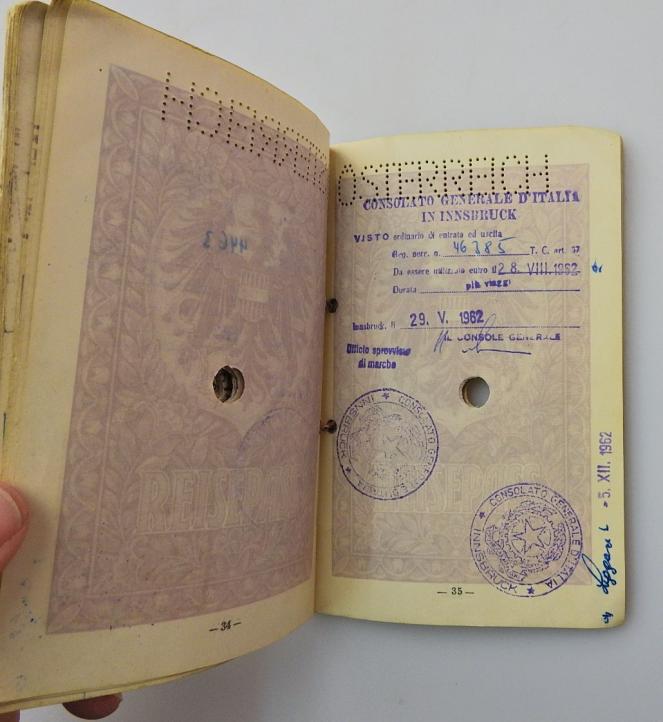 4463
REISEPASS
— 34 —
ÖSTERREICH
CONSOLATO GENERALE D'ITALIA
IN INNSBRUCK
VISTO ordinario di entrata ed uscita
Reg. corr. n. 46385 T. C. art. 37
Da essere utilizzato entro il 28. VIII. 1962
Durata più viaggi
Innsbruck, lì 29. V. 1962
IL CONSOLE GENERALE
Ufficio sprovvisto
di marche
CONSOLATO GENERALE D'ITALIA
INNSBRUCK
CONSOLATO GENERALE D'ITALIA
INNSBRUCK
- 5. XII. 1962
— 35 —